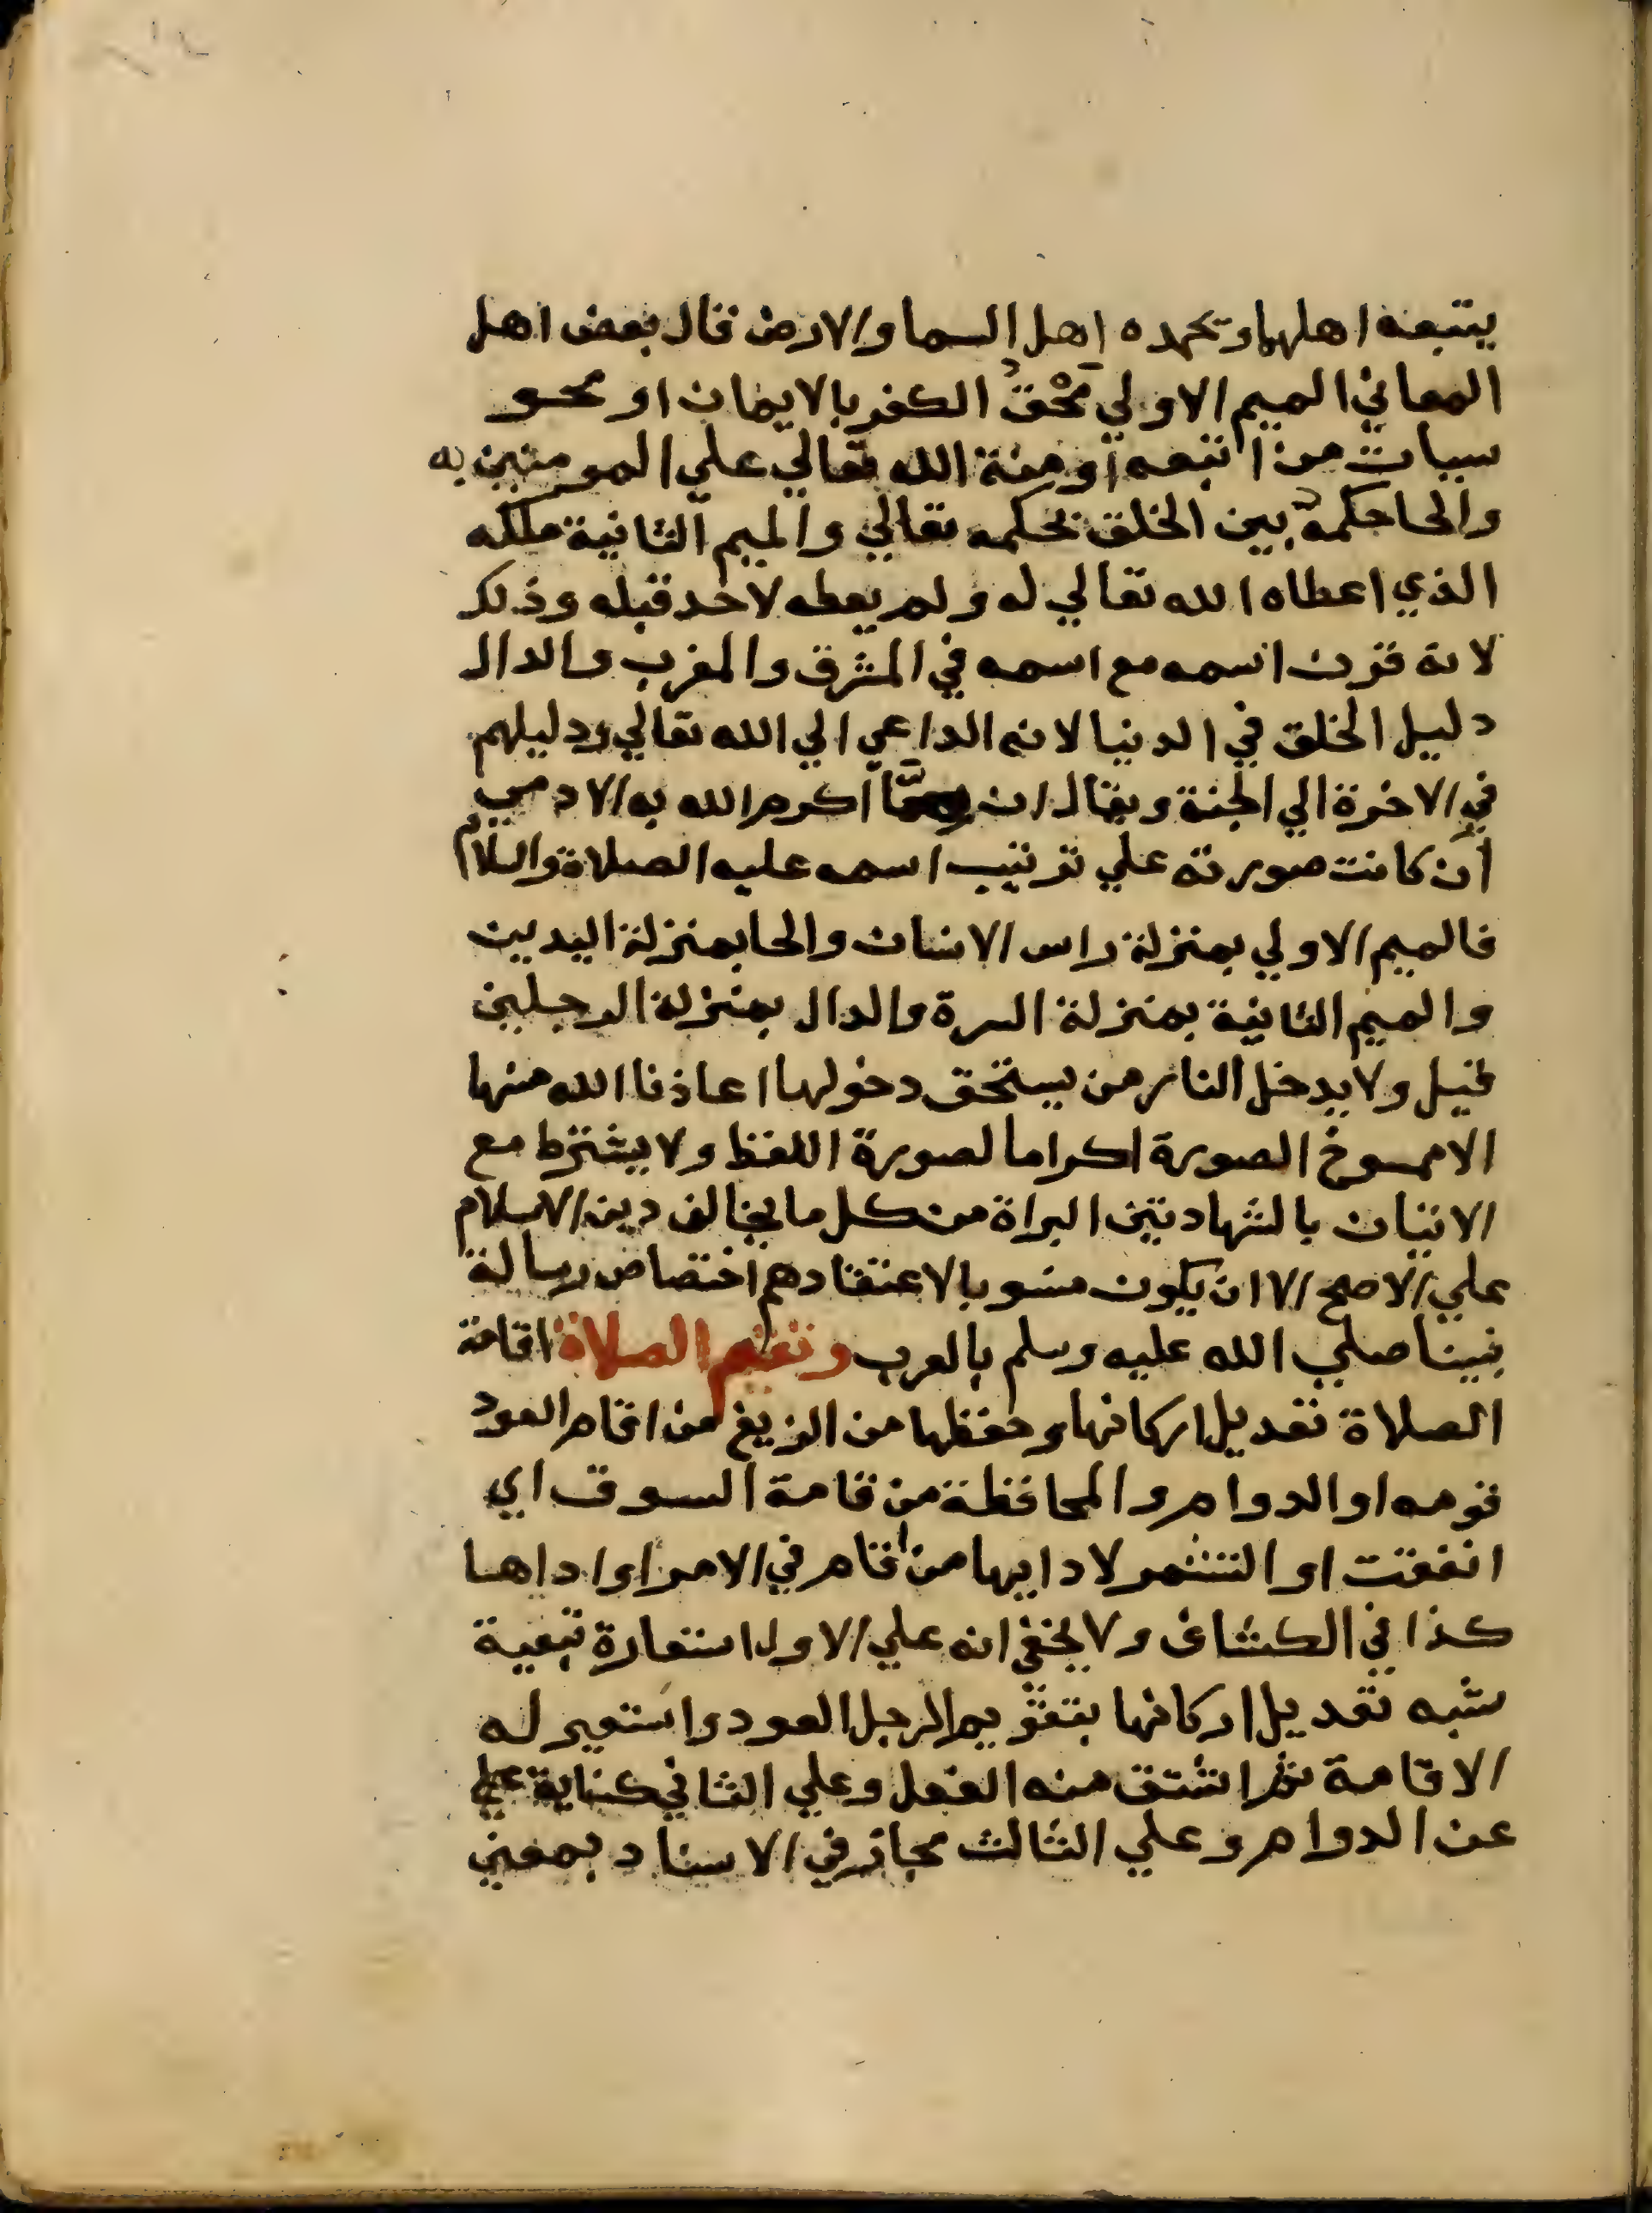 يتبعه اهلها وتحمده اهل السما والارض قال بعض اهل
المعاني الميم الاولي مَحْقُ الكفر بالايمان او محو
سيات من اتبعه او منة الله تعالي علي المومنين به
والحا حكمه بين الخلق بحكمه تعالي والميم الثانية ملكه
الذي اعطاه الله تعالي له ولم يعطه لاحد قبله وذلك
لانه قرن اسمه مع اسمه في المشرق والمغرب والدال
دليل الخلق في الدنيا لانه الداعي الي الله تعالي ودليلهم
في الاخرة الي الجنة ويقال ان ممَّا اكرم الله به الادمي
ان كانت صورته علي ترتيب اسمه عليه الصلاة والسلام
فالميم الاولي بمنزلة راس الانسان والحا بمنزلة اليدين
والميم الثانية بمنزلة السرة والدال بمنزلة الرجلين
قيل ولا يدخل النار من يستحق دخولها اعاذنا الله منها
الا ممسوخ الصورة اكراما لصورة اللفظ ولا يشترط مع
الاتيان بالشهادتين البراة من كل ما يخالف دين الاسلام
علي الاصح الا ان يكون مشوبا لاعتقادهم اختصاص رسالة
نبينا صلي الله عليه وسلم بالعرب وتقيم الصلاة اقامة
الصلاة تعديل اركانها وحفظها من الزيغ من اقام العود
قومه او الدوام والمحافظة من قامة السوق اي
انفقت او التشمر لادايها من اقام في الامر او اداها
كذا في الكشاف ولا يخفي انه علي الاول استعارة تبعية
شبه تعديل اركانها بتقويم الرجل العود واستعير له
الاقامة ثم اشتق منه الفعل وعلي الثاني كناية
عن الدوام وعلي الثالث مجاز في الاسناد بمعني